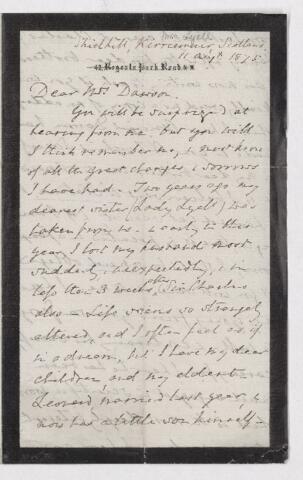 Mrs Lyell
Shielhill, Kirriemuir, Scotland
42 Regents Park Road N.W.
11 Augt 1875
Dear Mrs Dawson
You will be surprized at
hearing from me but you will
I think remember me, & must know
of all the great changes & sorrows
I have had. Two years ago my
dearest sister (Lady Lyell) was
taken from us. & early in this
year I lost my husband most
suddenly, & unexpectedly, & in
less than 3 weeks after Sir Charles
also — Life seems so strangely
altered, and I often feel as if
in a dream, yet I have my dear
children, and my eldest
Leonard married last year, &
now has a little son himself —